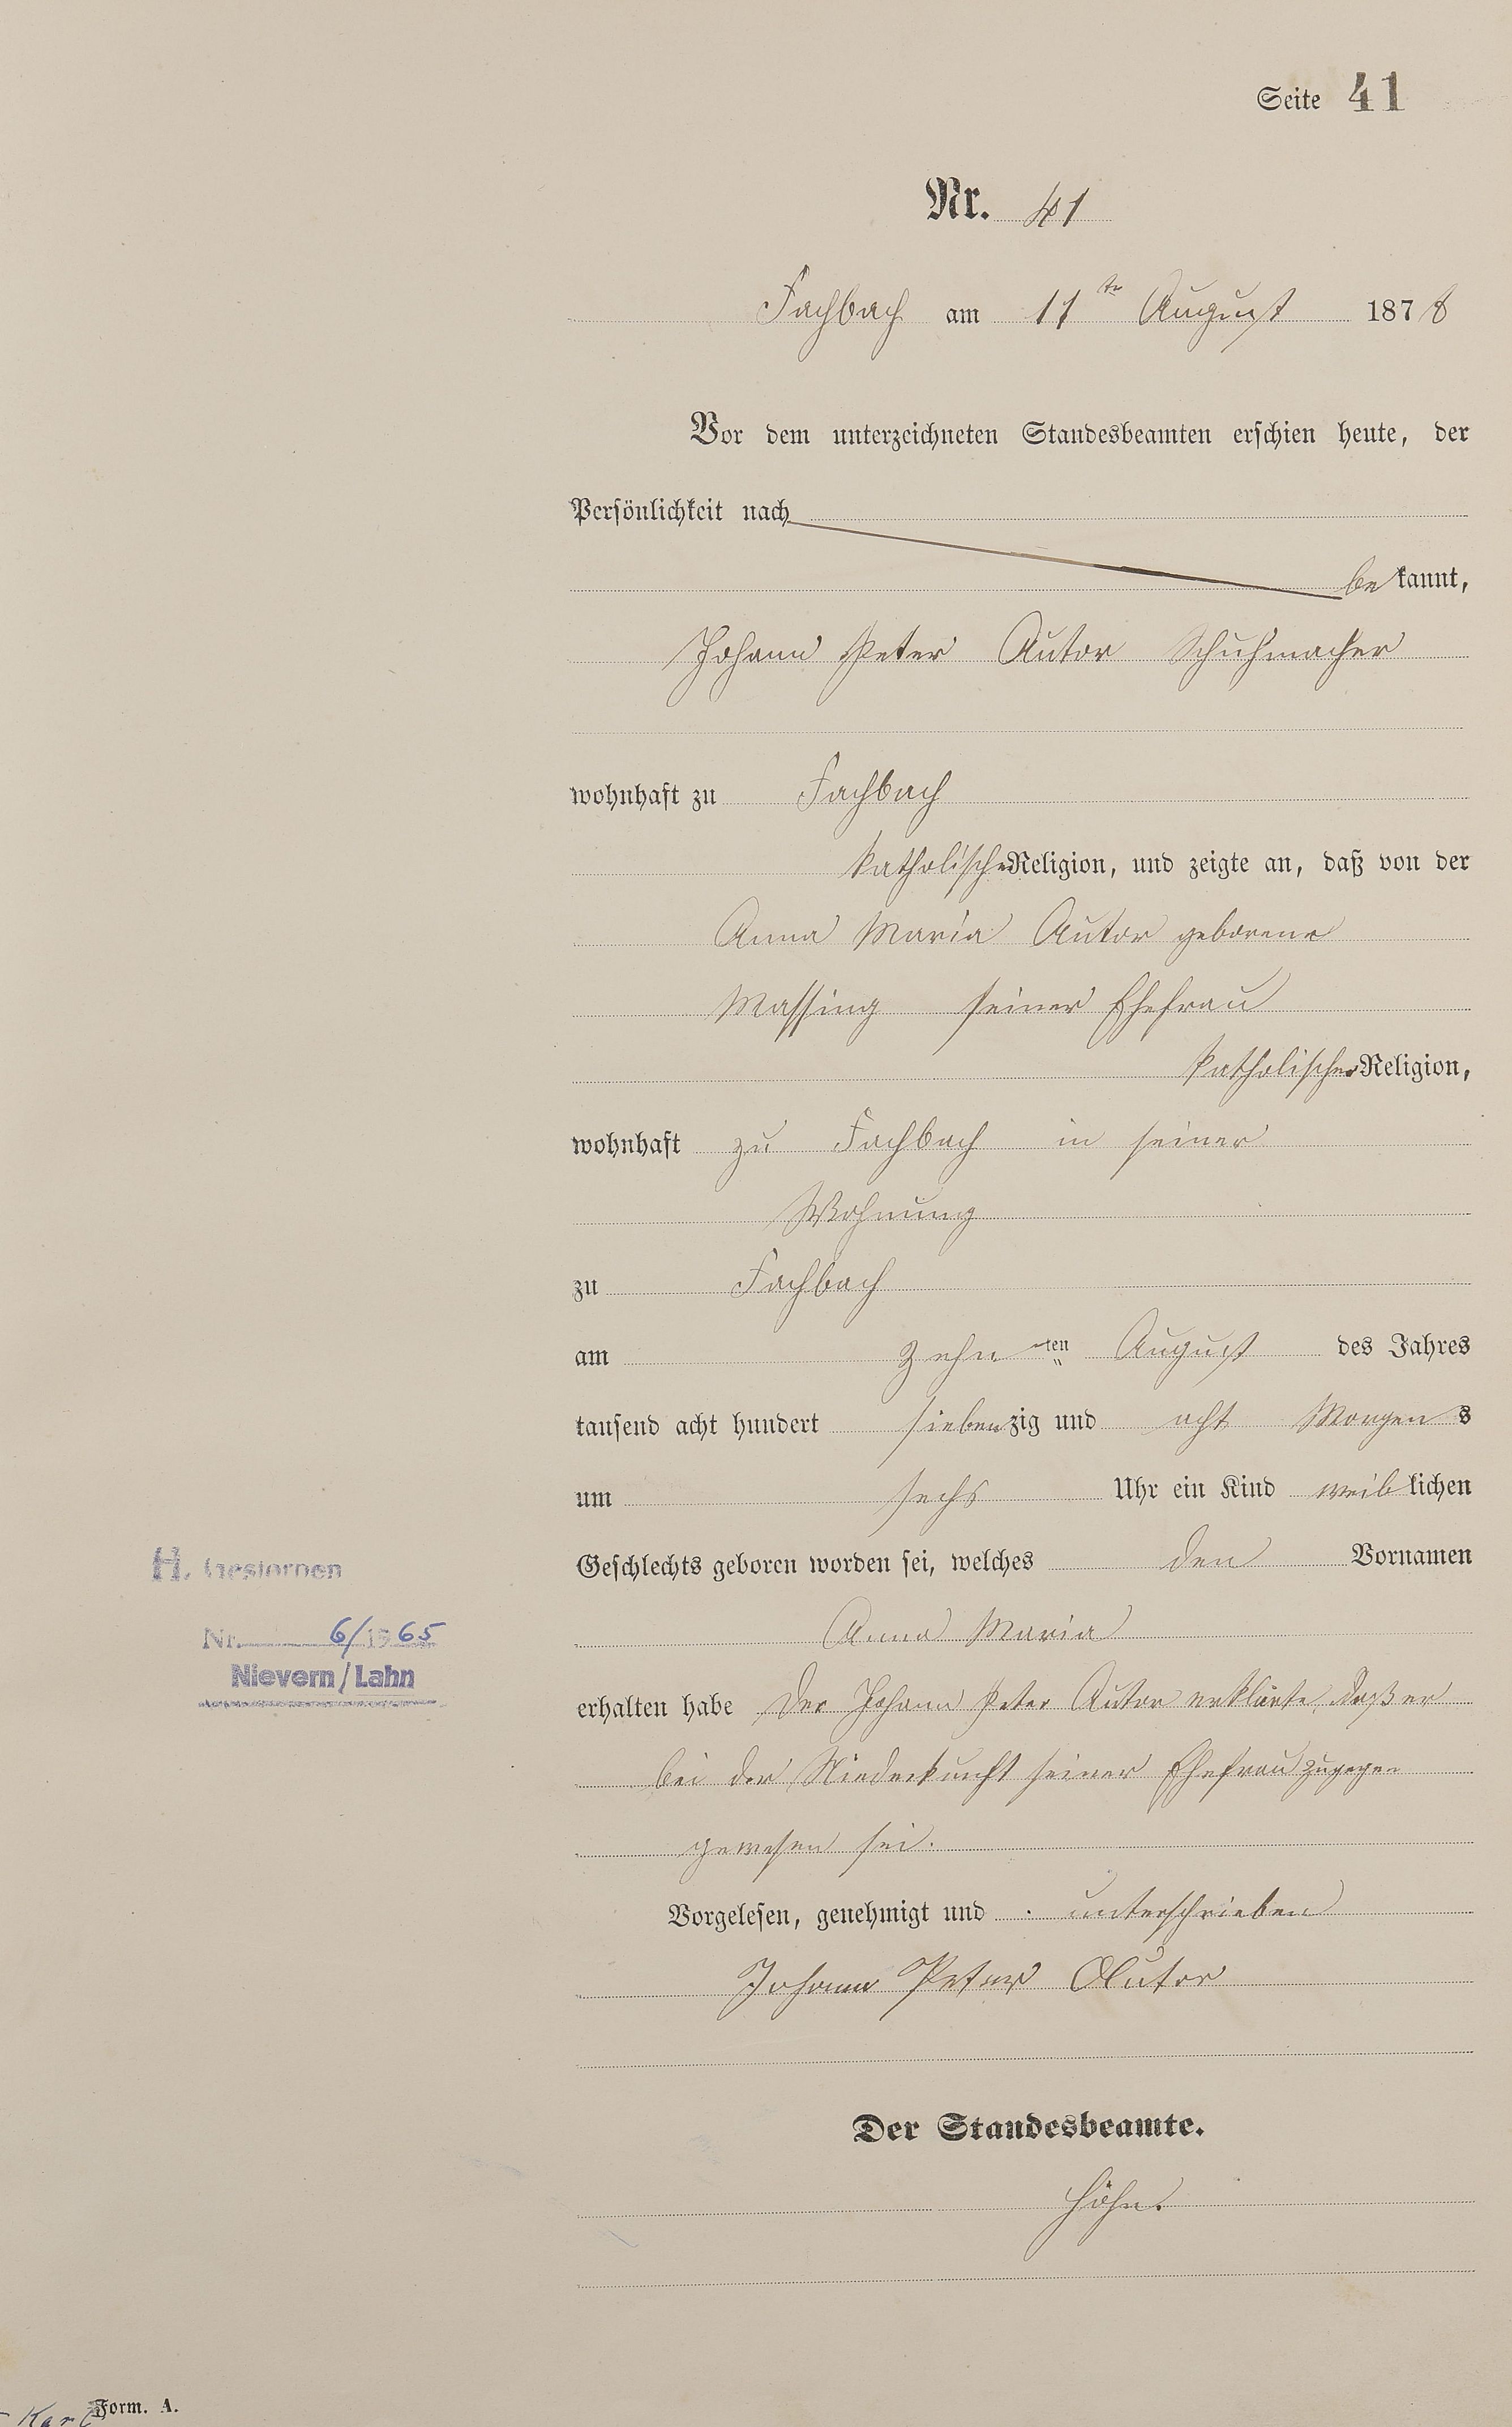 Seite 41
Nr. 41
Fachbach am 11ten August 1878
Vor dem unterzeichneten Standesbeamten erschien heute, der
Persönlichkeit nach
bekannt,
Johann Peter Autor Schuhmacher
wohnhaft zu Fachbach
katholischer Religion, und zeigte an, daß von der
Anna Maria Autor geborene
Massing seiner Ehefrau
katholischer Religion,
wohnhaft zu Fachbach in seiner
Wohnung
zu Fachbach
am zehnten August des Jahres
tausend acht hundert siebenzig und acht Morgens
um sechs Uhr ein Kind weiblichen
Geschlechts geboren worden sei, welches den Vornamen
Anna Maria
erhalten habe Der Johann Peter Autor erklärte, daß er
bei der Niederkunft seiner Ehefrau zugegen
gewesen sei.
Vorgelesen, genehmigt und unterschrieben
Johann Peter Autor
Der Standesbeamte.
Höhn.
H. Gestorben
Nr. 6/1965
Nievern/Lahn
Form. A.
Karl